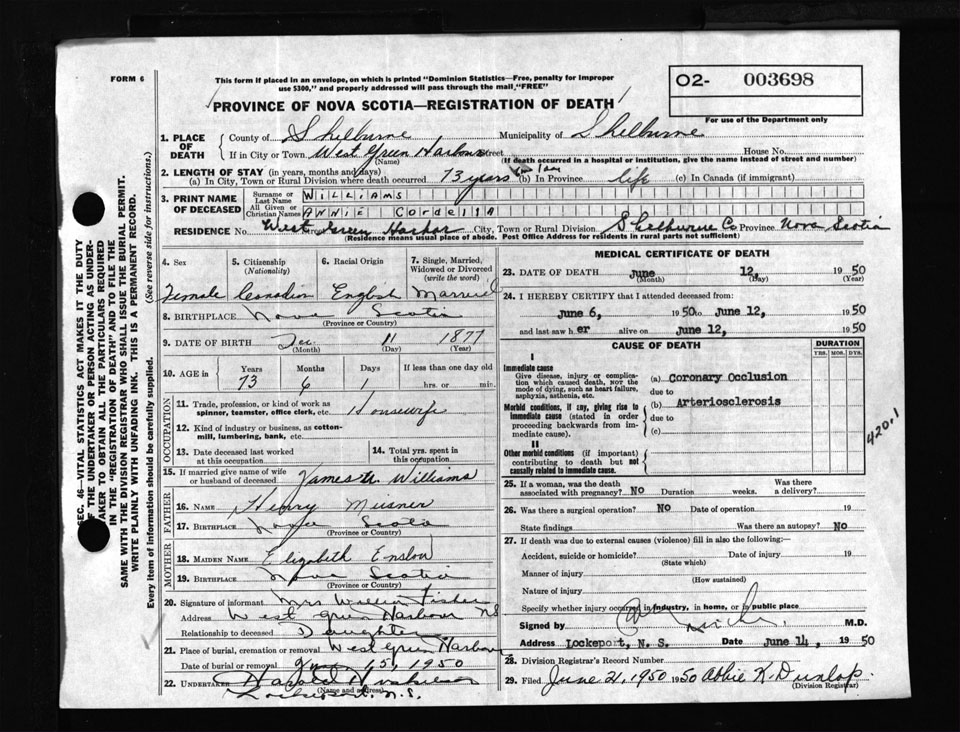 FORM 6
This form if placed in an envelope, on which is printed "Dominion Statistics—Free, penalty for improper
use $300," and properly addressed will pass through the mail "FREE"
O2- 003698
For use of the Department only
PROVINCE OF NOVA SCOTIA—REGISTRATION OF DEATH
1. PLACE OF DEATH
County of Shelburne Municipality of Shelburne
If in City or Town West Green Harbour Street House No.
(Name) (If death occurred in a hospital or institution, give the name instead of street and number)
2. LENGTH OF STAY (in years, months and days)
(a) In City, Town or Rural Division where death occurred 73 years (b) In Province life (c) In Canada (if immigrant)
3. PRINT NAME OF DECEASED
Surname or Last Name WILLIAMS
All Given or Christian Names ANNIE CordeliA
RESIDENCE No. West Green Harbor City, Town or Rural Division Shelburne Co Province Nova Scotia
(Residence means usual place of abode. Post Office Address for residents in rural parts not sufficient)
4. Sex Female
5. Citizenship (Nationality) Canadian
6. Racial Origin English
7. Single, Married, Widowed or Divorced (write the word) Married
8. BIRTHPLACE Nova Scotia
(Province or Country)
9. DATE OF BIRTH Dec 11 1877
(Month) (Day) (Year)
10. AGE in Years Months Days If less than one day old
73 6 1 hrs. or min.
OCCUPATION
11. Trade, profession, or kind of work as spinner, teamster, office clerk, etc. Housewife
12. Kind of industry or business, as cotton-mill, lumbering, bank, etc.
13. Date deceased last worked at this occupation
14. Total yrs. spent in this occupation
15. If married give name of wife or husband of deceased James Williams
FATHER
16. NAME Henry Meisner
17. BIRTHPLACE Nova Scotia
(Province or Country)
MOTHER
18. MAIDEN NAME Elizabeth Enslow
19. BIRTHPLACE Nova Scotia
(Province or Country)
20. Signature of informant Mrs Fisher
Address West Green Harbour NS
Relationship to deceased Daughter
21. Place of burial, cremation or removal West Green Harbour
Date of burial or removal June 15, 1950
22. UNDERTAKER Harold
(Name and address)
Lockeport N.S.
MEDICAL CERTIFICATE OF DEATH
23. DATE OF DEATH June 12, 1950
(Month) (Day) (Year)
24. I HEREBY CERTIFY that I attended deceased from:
June 6, 1950 to June 12, 1950
and last saw her alive on June 12, 1950
CAUSE OF DEATH DURATION
YRS. MOS. DYS.
I
Immediate cause
Give disease, injury or complication which caused death, NOT the mode of dying, such as heart failure, asphyxia, asthenia, etc.
(a) Coronary Occlusion
due to
Morbid conditions, if any, giving rise to immediate cause (stated in order proceeding backwards from immediate cause).
(b) Arteriosclerosis
due to
(c)
II
Other morbid conditions (if important) contributing to death but not causally related to immediate cause.
420.1
25. If a woman, was the death associated with pregnancy? No Duration weeks. Was there a delivery?
26. Was there a surgical operation? No Date of operation 19
State findings Was there an autopsy? No
27. If death was due to external causes (violence) fill in also the following:
Accident, suicide or homicide? Date of injury 19
(State which)
Manner of injury
(How sustained)
Nature of injury
Specify whether injury occurred in industry, in home, or in public place
Signed by M.D.
Address Lockeport, N. S. Date June 14, 1950
28. Division Registrar's Record Number
29. Filed June 21, 1950 1950 Abbie K. Dunlop.
(Division Registrar)
SEC. 46—VITAL STATISTICS ACT MAKES IT THE DUTY
OF THE UNDERTAKER OR PERSON ACTING AS UNDER-
TAKER TO OBTAIN ALL THE PARTICULARS REQUIRED
IN THE "REGISTRATION OF DEATH" AND TO FILE THE
SAME WITH THE DIVISION REGISTRAR WHO SHALL ISSUE THE BURIAL PERMIT.
WRITE PLAINLY WITH UNFADING INK. THIS IS A PERMANENT RECORD.
Every item of information should be carefully supplied. (See reverse side for instructions.)